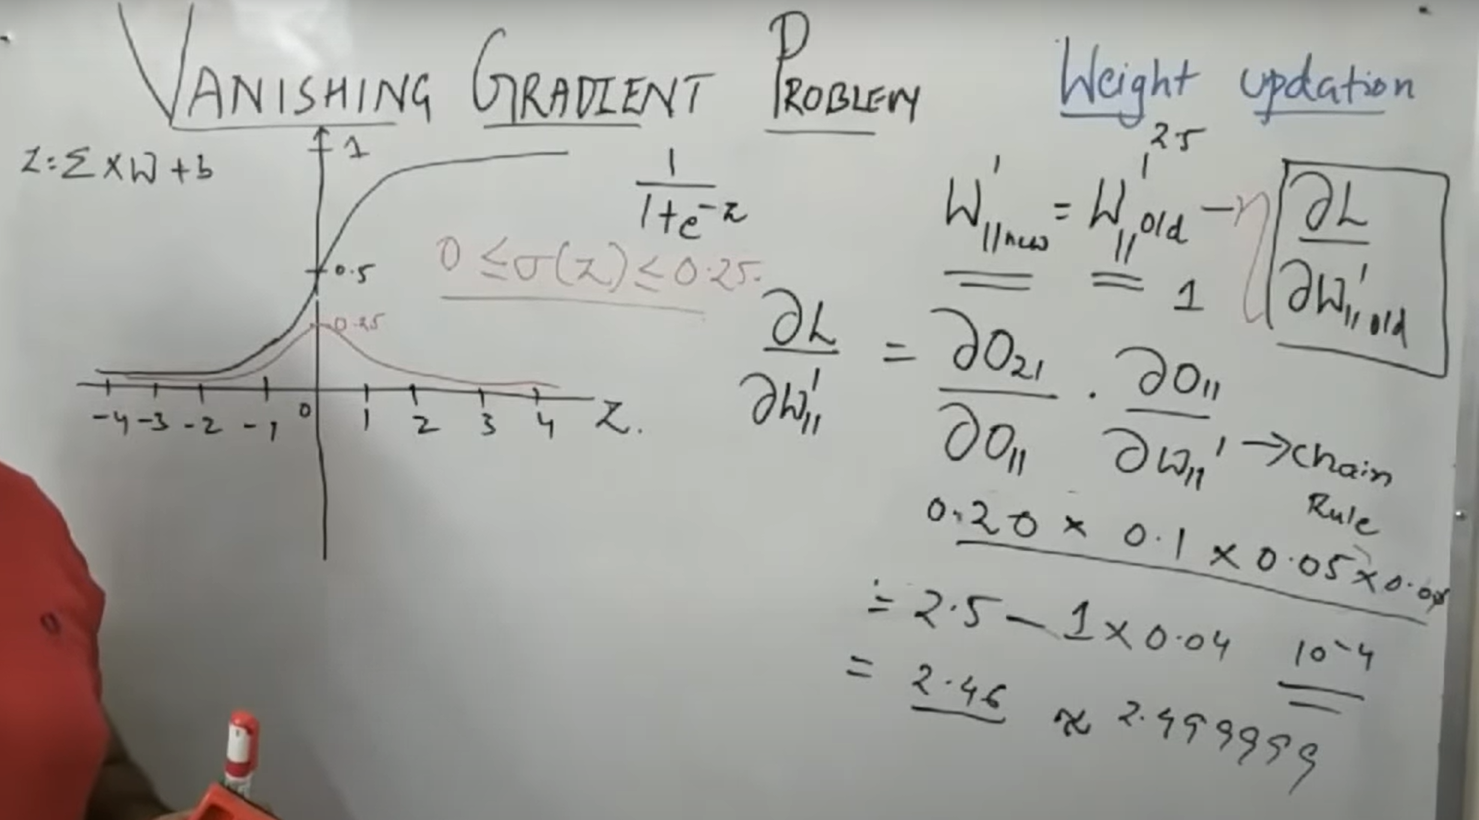 VANISHING GRADIENT PROBLEM
Weight updation
Z=ΣXW+b
1
0.5
0.25
-4 -3 -2 -1 0 1 2 3 4 Z.
1/(1+e^-z)
0 ≤ σ(z) ≤ 0.25.
2.5
W'₁₁new = W'₁₁old - η ∂L/∂W'₁₁old
1
∂L/∂W'₁₁ = ∂O₂₁/∂O₁₁ . ∂O₁₁/∂W₁₁' → chain
Rule
0.20 × 0.1 × 0.05 ×
= 2.5 - 1 × 0.04
10^-4
= 2.46 ≈ 2.499999